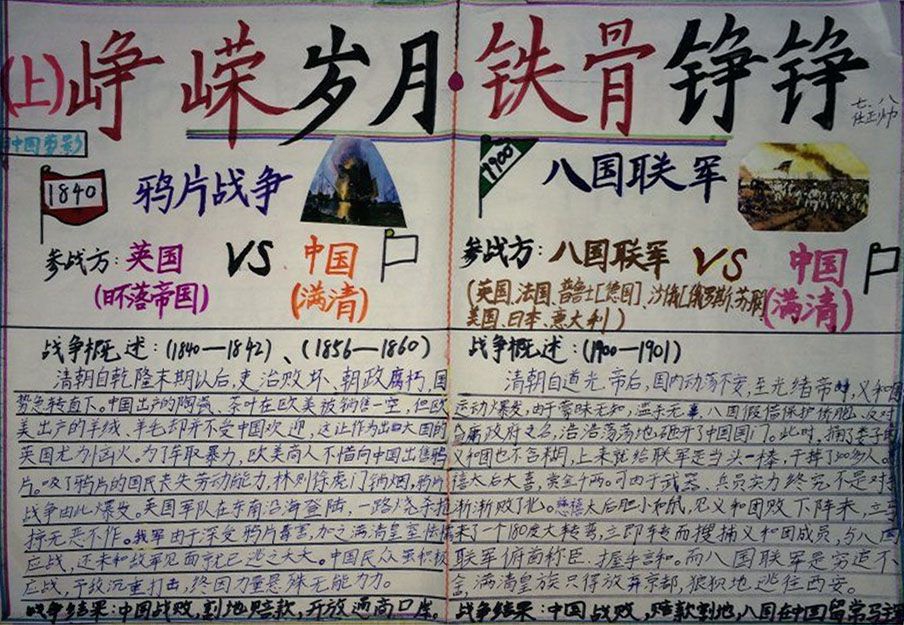 (上)峥嵘岁月 铁骨铮铮
七、八
中国剪影
1840 鸦片战争
参战方:英国 VS 中国
(日不落帝国) (满清)
战争概述:(1840—1842)、(1856—1860)
清朝自乾隆末期以后,吏治败坏、朝政腐朽,国
势急转直下。中国出产的陶瓷、茶叶在欧美被销售一空,但欧
美出产的羊绒、羊毛却并不受中国欢迎,这让作为出口大国的
英国尤为恼火。为了牟取暴力,欧美商人不惜向中国出售鸦
片。吸了鸦片的国民丧失劳动能力,林则徐虎门销烟,鸦片
战争由此爆发。英国军队在东南沿海登陆,一路烧杀抢
掠无恶不作。我军由于深受鸦片毒害,加之满清皇室怯懦
应战,还未和敌军见面就已逃之大大。中国民众虽积极
应战,予敌沉重打击,终因力量悬殊无能力力。
战争结果:中国战败,割地赔款,开放通商口岸。
1900 八国联军
参战方:八国联军 VS 中国
(英国、法国、普鲁士[德国]、沙俄[俄罗斯、苏联] (满清)
美国、日本、意大利)
战争概述:(1900—1901)
清朝自道光帝后,国内动荡不安,至光绪帝时,义和团
运动爆发,由于蒙昧无知,滥杀无辜,八国假借保护侨胞、反对
政府之名,浩浩荡荡地砸开了中国国门。此时,捅了娄子的
义和团也不含糊,上来就给联军是当头一棒,干掉了
禧太后大喜,赏金千两。可由于武器、兵员实力终究不是对手
渐渐败了。慈禧太后胆小如鼠,见义和团败下阵来,立马
来了个180度大转弯,立即转而搜捕义和团成员,与八国
联军俯首称臣、握手言和。而八国联军是穷追不
舍,满清皇族只得放弃京都,狼狈地逃往西安。
战争结果:中国战败,赔款割地,八国在中国留常